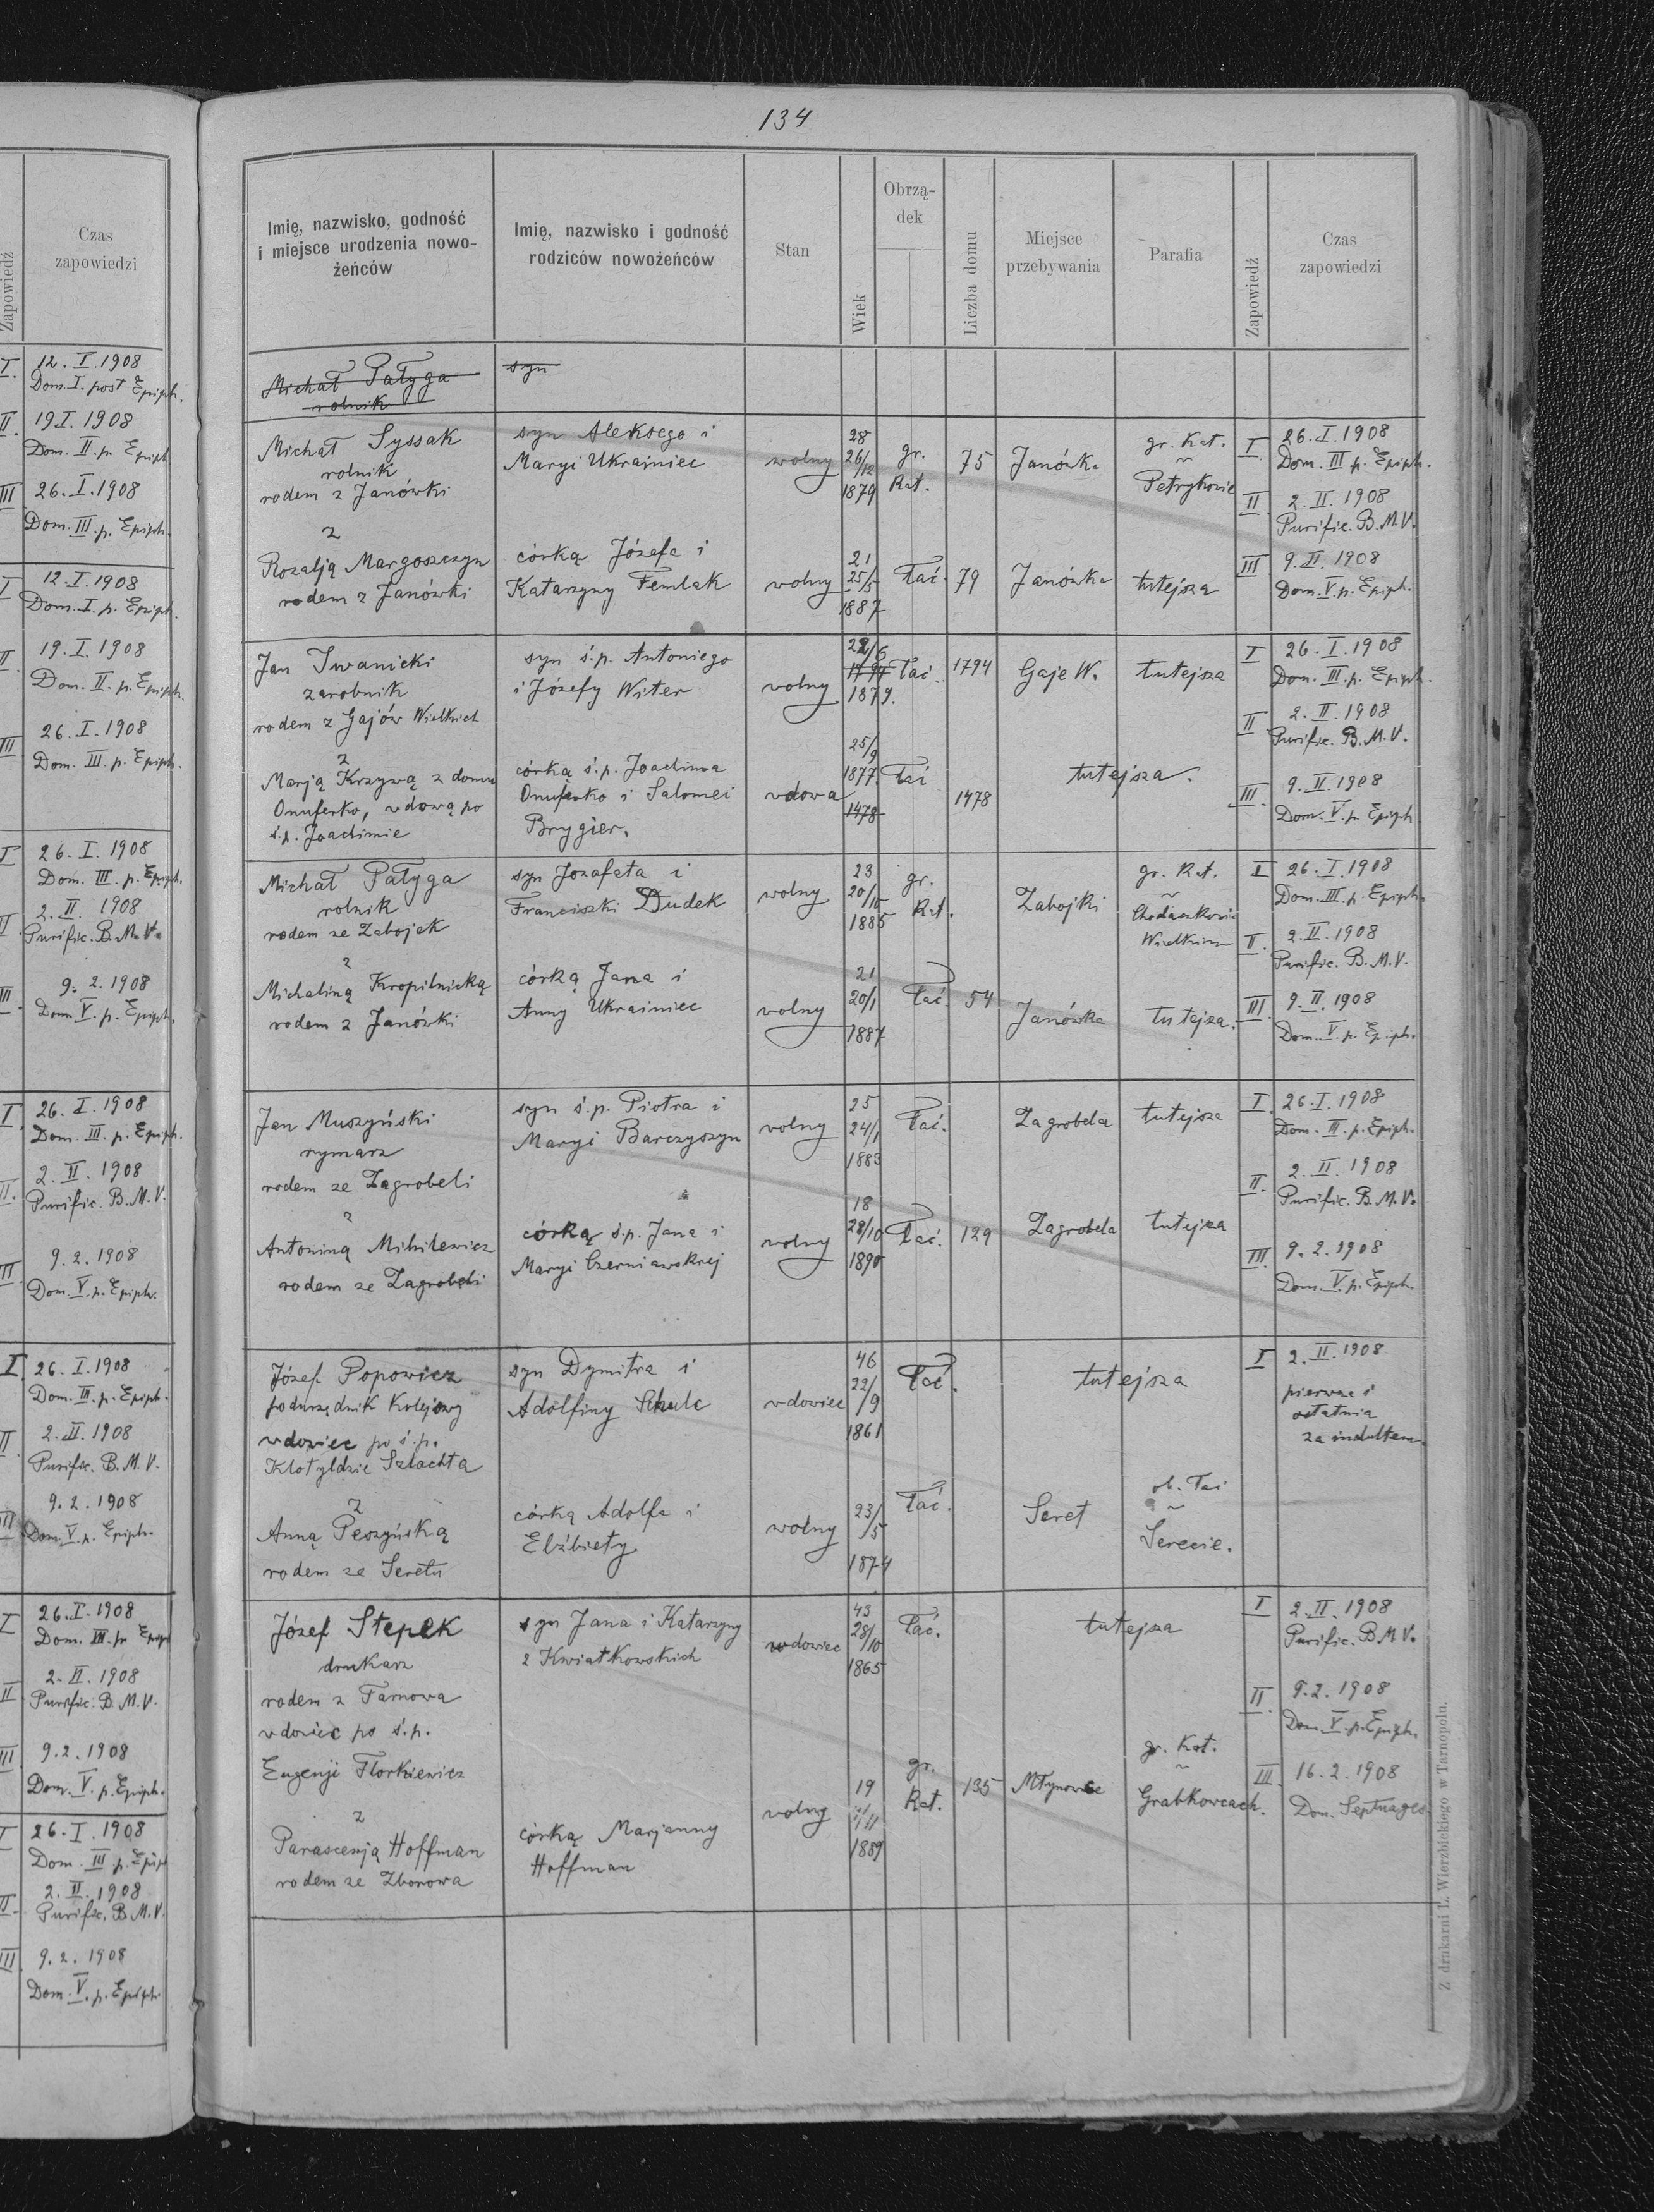 Zapowiedź
Czas
zapowiedzi
I. 12. I. 1908
Dom. I. post Epiph.
II. 19 I. 1908
Dom. II. p. Epiph
III 26. I. 1908
Dom. III. p. Epiph.
I 12. I. 1908
Dom. I. p. Epiph.
II 19. I. 1908
Dom. II. p. Epiph.
III 26. I. 1908
Dom. III. p. Epiph.
I 26. I. 1908
Dom. III. p. Epiph.
II. 2. II. 1908
Purific. B. M. V.
III. 9. 2. 1908
Dom. V. p. Epiph.
I. 26. I. 1908
Dom. III. p. Epiph.
II. 2. II. 1908
Purific. B. M. V.
III 9. 2. 1908
Dom. V. p. Epiph.
I. 26. I. 1908
Dom. III. p. Epiph.
II 2. II. 1908
Purific. B. M. V.
III 9. 2. 1908
Dom. V. p. Epiph.
I 26. I. 1908
Dom. III. p. Epiph
II 2. II. 1908
Purific. B. M. V.
III 9. 2. 1908
Dom. V. p. Epiph.
I 26. I. 1908
Dom. III p. Epiph
II. 2. II. 1908
Purific. B M. V.
III. 9. 2. 1908
Dom. V. p. Epiph
134
Imię, nazwisko, godność
i miejsce urodzenia nowo-
żeńców
Imię, nazwisko i godność
rodziców nowożeńców
Stan
Wiek
Obrzą-
dek
Liczba domu
Miejsce
przebywania
Parafia
Zapowiedź
Czas
zapowiedzi
Michał Pałyga
rolnik
syn
Michał Syssak
rolnik
rodem z Janówki
syn Aleksego i
Maryi Ukrainiec
wolny
28
26/12
1879
gr.
Kat.
75
Janówka
gr. Kat.
Petrykowie
I 26. I. 1908
Dom. III p. Epiph.
II 2. II. 1908
Purific. B. M. V.
z
Rozalją Margoszczyn
rodem z Janówki
córką Józefa i
Katarzyny Femlak
wolny
21
25/5
1887
Łać.
79
Janówka
tutejsza
III 9. II. 1908
Dom. V. p. Epiph.
Jan Iwanicki
zarobnik
rodem z Gajów Wielkich
syn ś.p. Antoniego
i Józefy Witer
wolny
1794
1879.
Łać.
1794
Gaje W.
tutejsza
I 26. I. 1908
Dom. III. p. Epiph.
II 2. II. 1908
Purific. B. M. V.
z
Marją Krzywą z domu
Onuferko, wdową po
ś.p. Joachimie
córką ś.p. Joachima
Onuferko i Salomei
Brygier.
wdowa
25/9
1877.
1478
Łać
1478
tutejsza.
III. 9. II. 1908
Dom. V. p. Epiph
Michał Pałyga
rolnik
rodem ze Zabojek
syn Jozafata i
Franciszki Dudek
wolny
23
20/10
1885
gr.
Kat.
Zabojki
gr. Kat.
Chodaczkowie
Wielkiem
I 26. I. 1908
Dom. III. p. Epiph.
II. 2. II. 1908
Purific. B. M. V.
z
Michaliną Kropilnicką
rodem z Janówki
córką Jana i
Anny Ukrainiec
wolny
21
20/1
1887
Łać.
54
Janówka
tutejsza.
III. 9. II. 1908
Dom. V. p. Epiph.
Jan Muszyński
rymarz
rodem ze Zagrobeli
syn ś.p. Piotra i
Maryi Barczyszyn
wolny
25
24/1
1883
Łać.
Zagrobela
tutejsza
I. 26. I. 1908
Dom. III. p. Epiph.
II. 2. II. 1908
Purific. B. M. V.
z
Antoniną Mihilewicz
rodem ze Zagrobeli
córką ś.p. Jana i
Maryi Czerniawskiej
wolny
18
28/10
1890
Łać.
129
Zagrobela
tutejsza
III. 9. 2. 1908
Dom. V. p. Epiph.
Józef Popowicz
podurzędnik kolejowy
wdowiec po ś.p.
Klotyldzie Szlachta
syn Dymitra i
Adolfiny Schulc
wdowiec
46
22/9
1861
Łać.
tutejsza
I 2. II. 1908
pierwsza i
ostatnia
za indultem.
z
Anną Peszyńską
rodem ze Seretu
córką Adolfa i
Elżbiety
wolny
23/5
1874
Łać.
Seret
ob. Łać
Serecie.
Józef Stepek
drukarz
rodem z Tarnowa
wdowiec po ś.p.
Eugenji Florkiewicz
syn Jana i Katarzyny
z Kwiatkowskich
wdowiec
43
28/10
1865
Łać.
tutejsza
I 2. II. 1908
Purific. B M V.
II. 9. 2. 1908
Dom. V. p. Epiph.
z
Parascenją Hoffman
rodem ze Zborowa
córką Marjanny
Hoffman
wolny
19
1889
gr.
Kat.
135
Młynowce
gr. Kat.
Grabkowcach.
III. 16. 2. 1908
Dom. Septuages
Z drukarni L. Wierzbickiego w Tarnopolu.